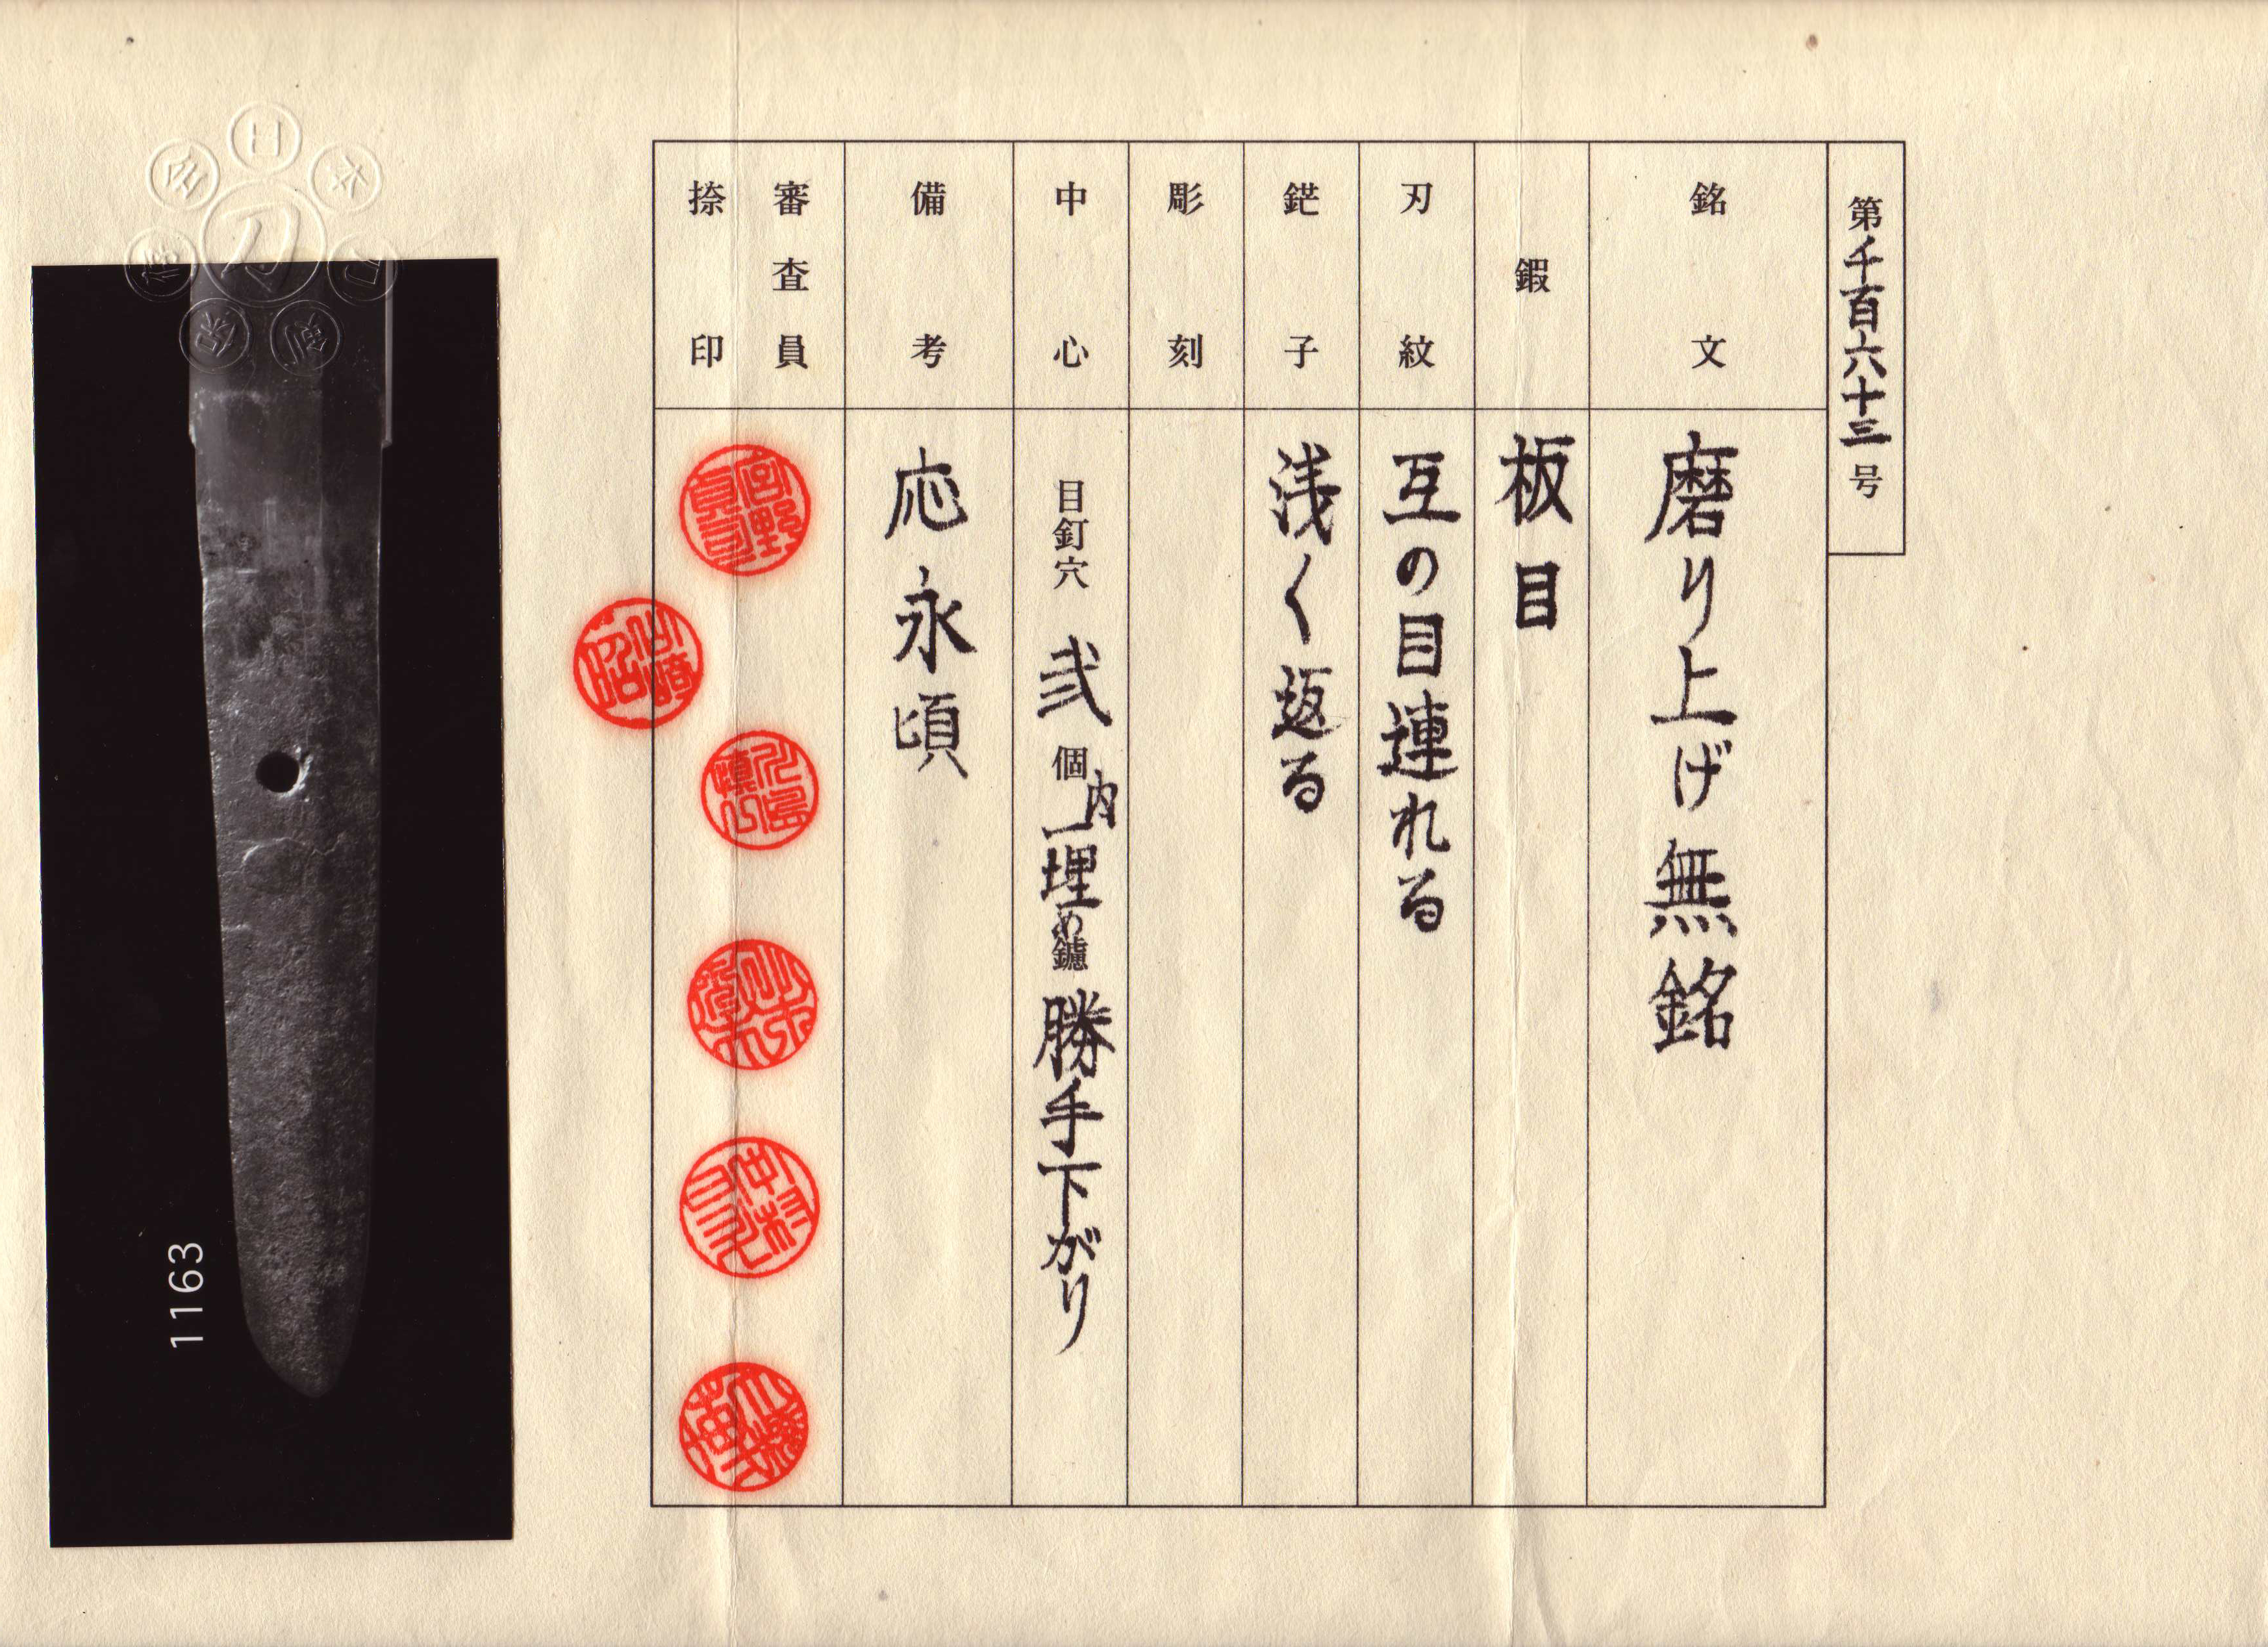 第千百六十三号
銘文 磨り上げ無銘
鍜 板目
刃紋 互の目連れる
鋩子 浅く返る
彫刻
中心 目釘穴 弐個 内一埋め 鑢 勝手下がり
備考 応永頃
審査員
捺印
1163